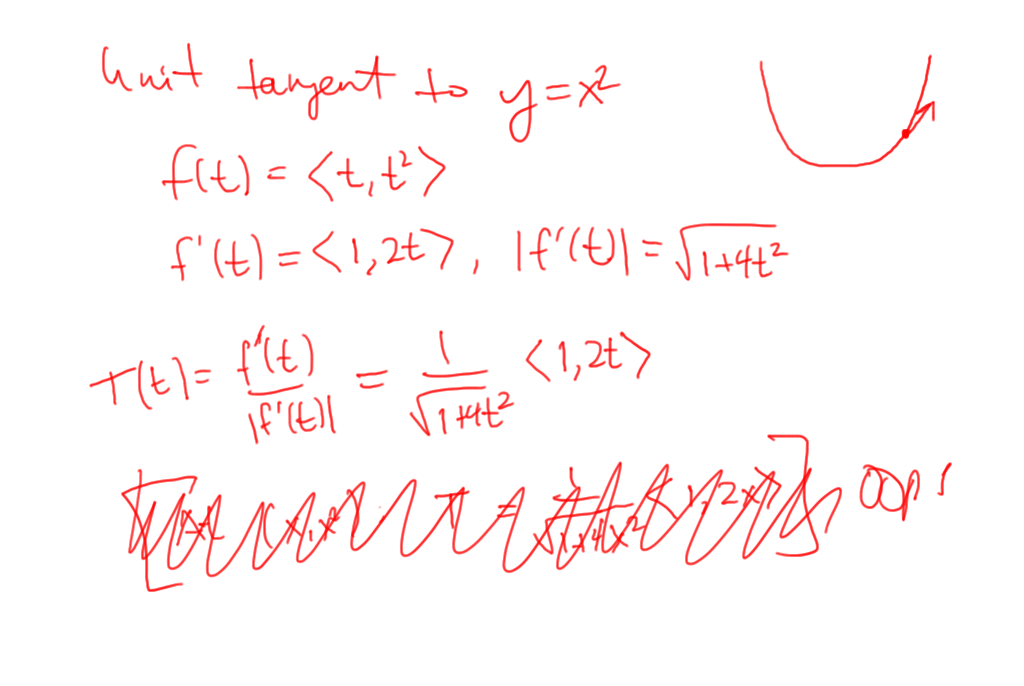 Unit tangent to y=x²
f(t) = ⟨t, t²⟩
f'(t) = ⟨1, 2t⟩, |f'(t)| = √(1+4t²)
T(t) = f'(t)/|f'(t)| = 1/√(1+4t²) ⟨1, 2t⟩
oops